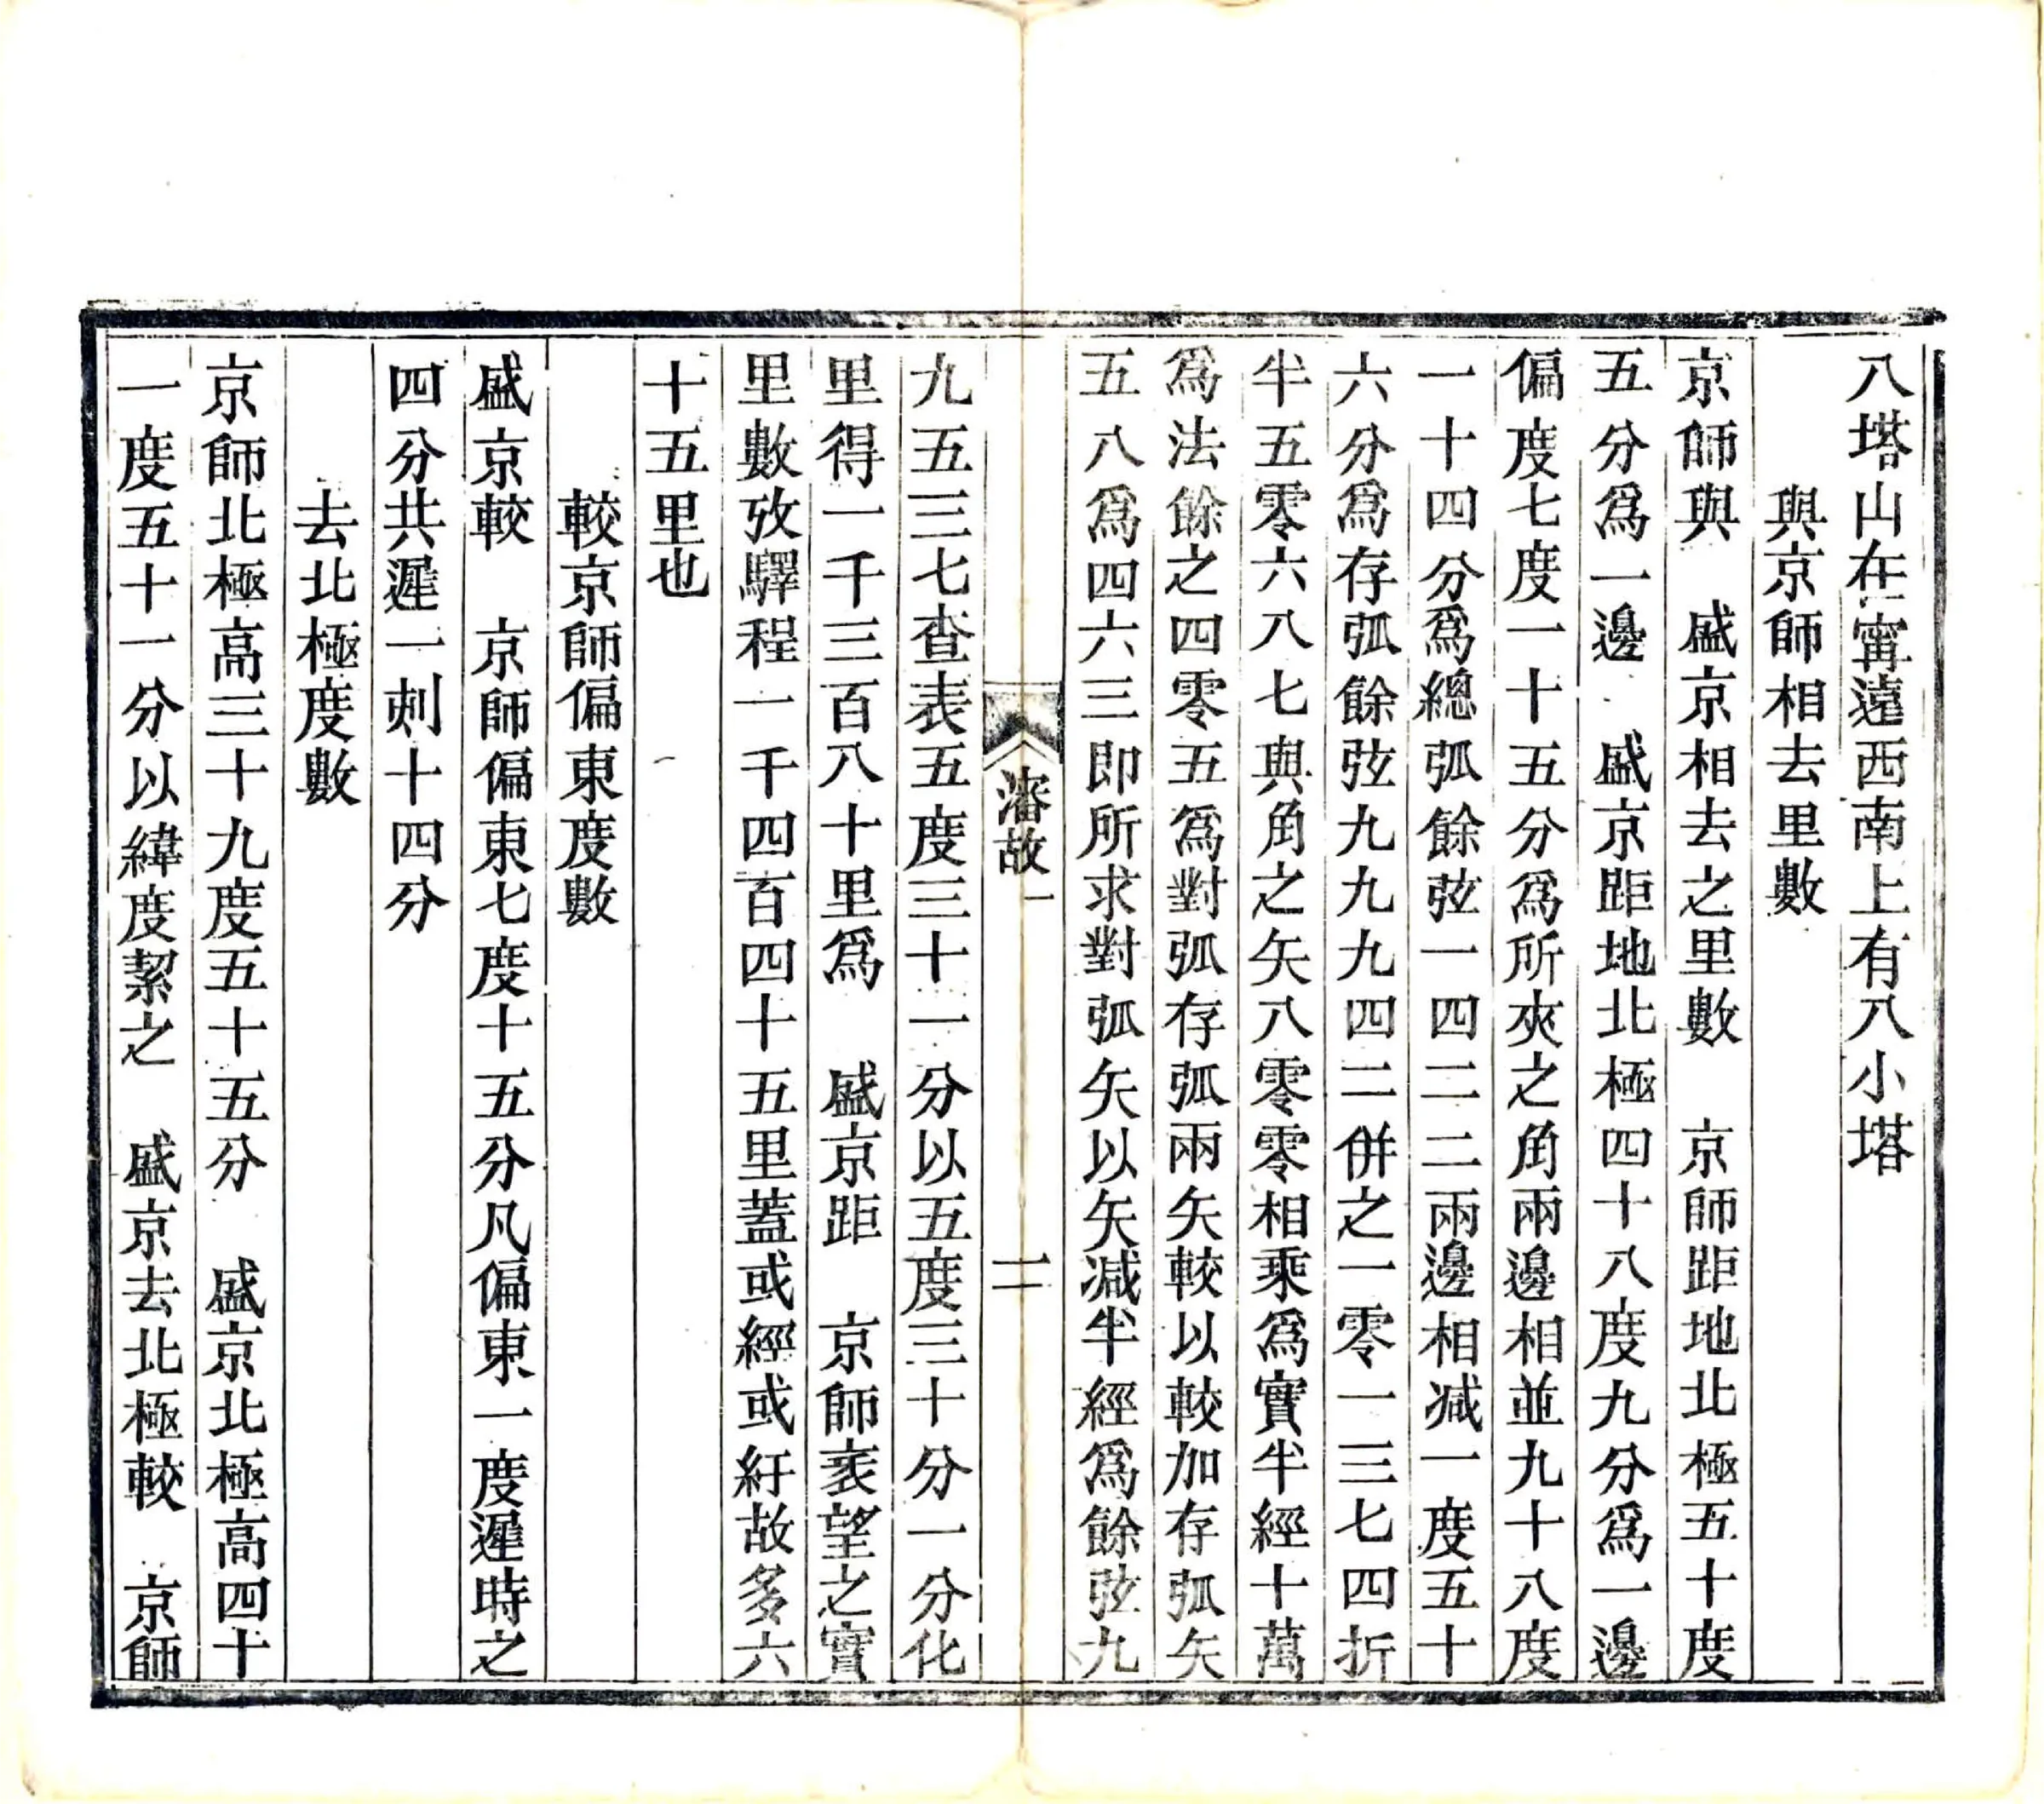 八塔山在甯遠西南上有八小塔
與京師相去里數
京師與　盛京相去之里數　京師距地北極五十度
五分爲一邊　盛京距地北極四十八度九分爲一邊
偏度七度一十五分爲所夾之角兩邊相並九十八度
一十四分爲總弧餘弦一四三二二兩邊相減一度五十
六分爲存弧餘弦九九九四二併之一零一三七四折
半五零六八七與角之矢八零零相乘爲實半經十萬
爲法餘之四零五爲對弧存弧兩矢較以較加存弧矢
五八爲四六三即所求對弧矢以矢減半經爲餘弦九
瀋故一　二
九五三七查表五度三十一分以五度三十分一分化
里得一千三百八十里爲　盛京距　京師袤望之實
里數攷驛程一千四百四十五里蓋或經或紆故多六
十五里也
較京師偏東度數
盛京較　京師偏東七度十五分凡偏東一度遲時之
四分共遲一刻十四分
去北極度數
京師北極高三十九度五十五分　盛京北極高四十
一度五十一分以緯度絜之　盛京去北極較　京師